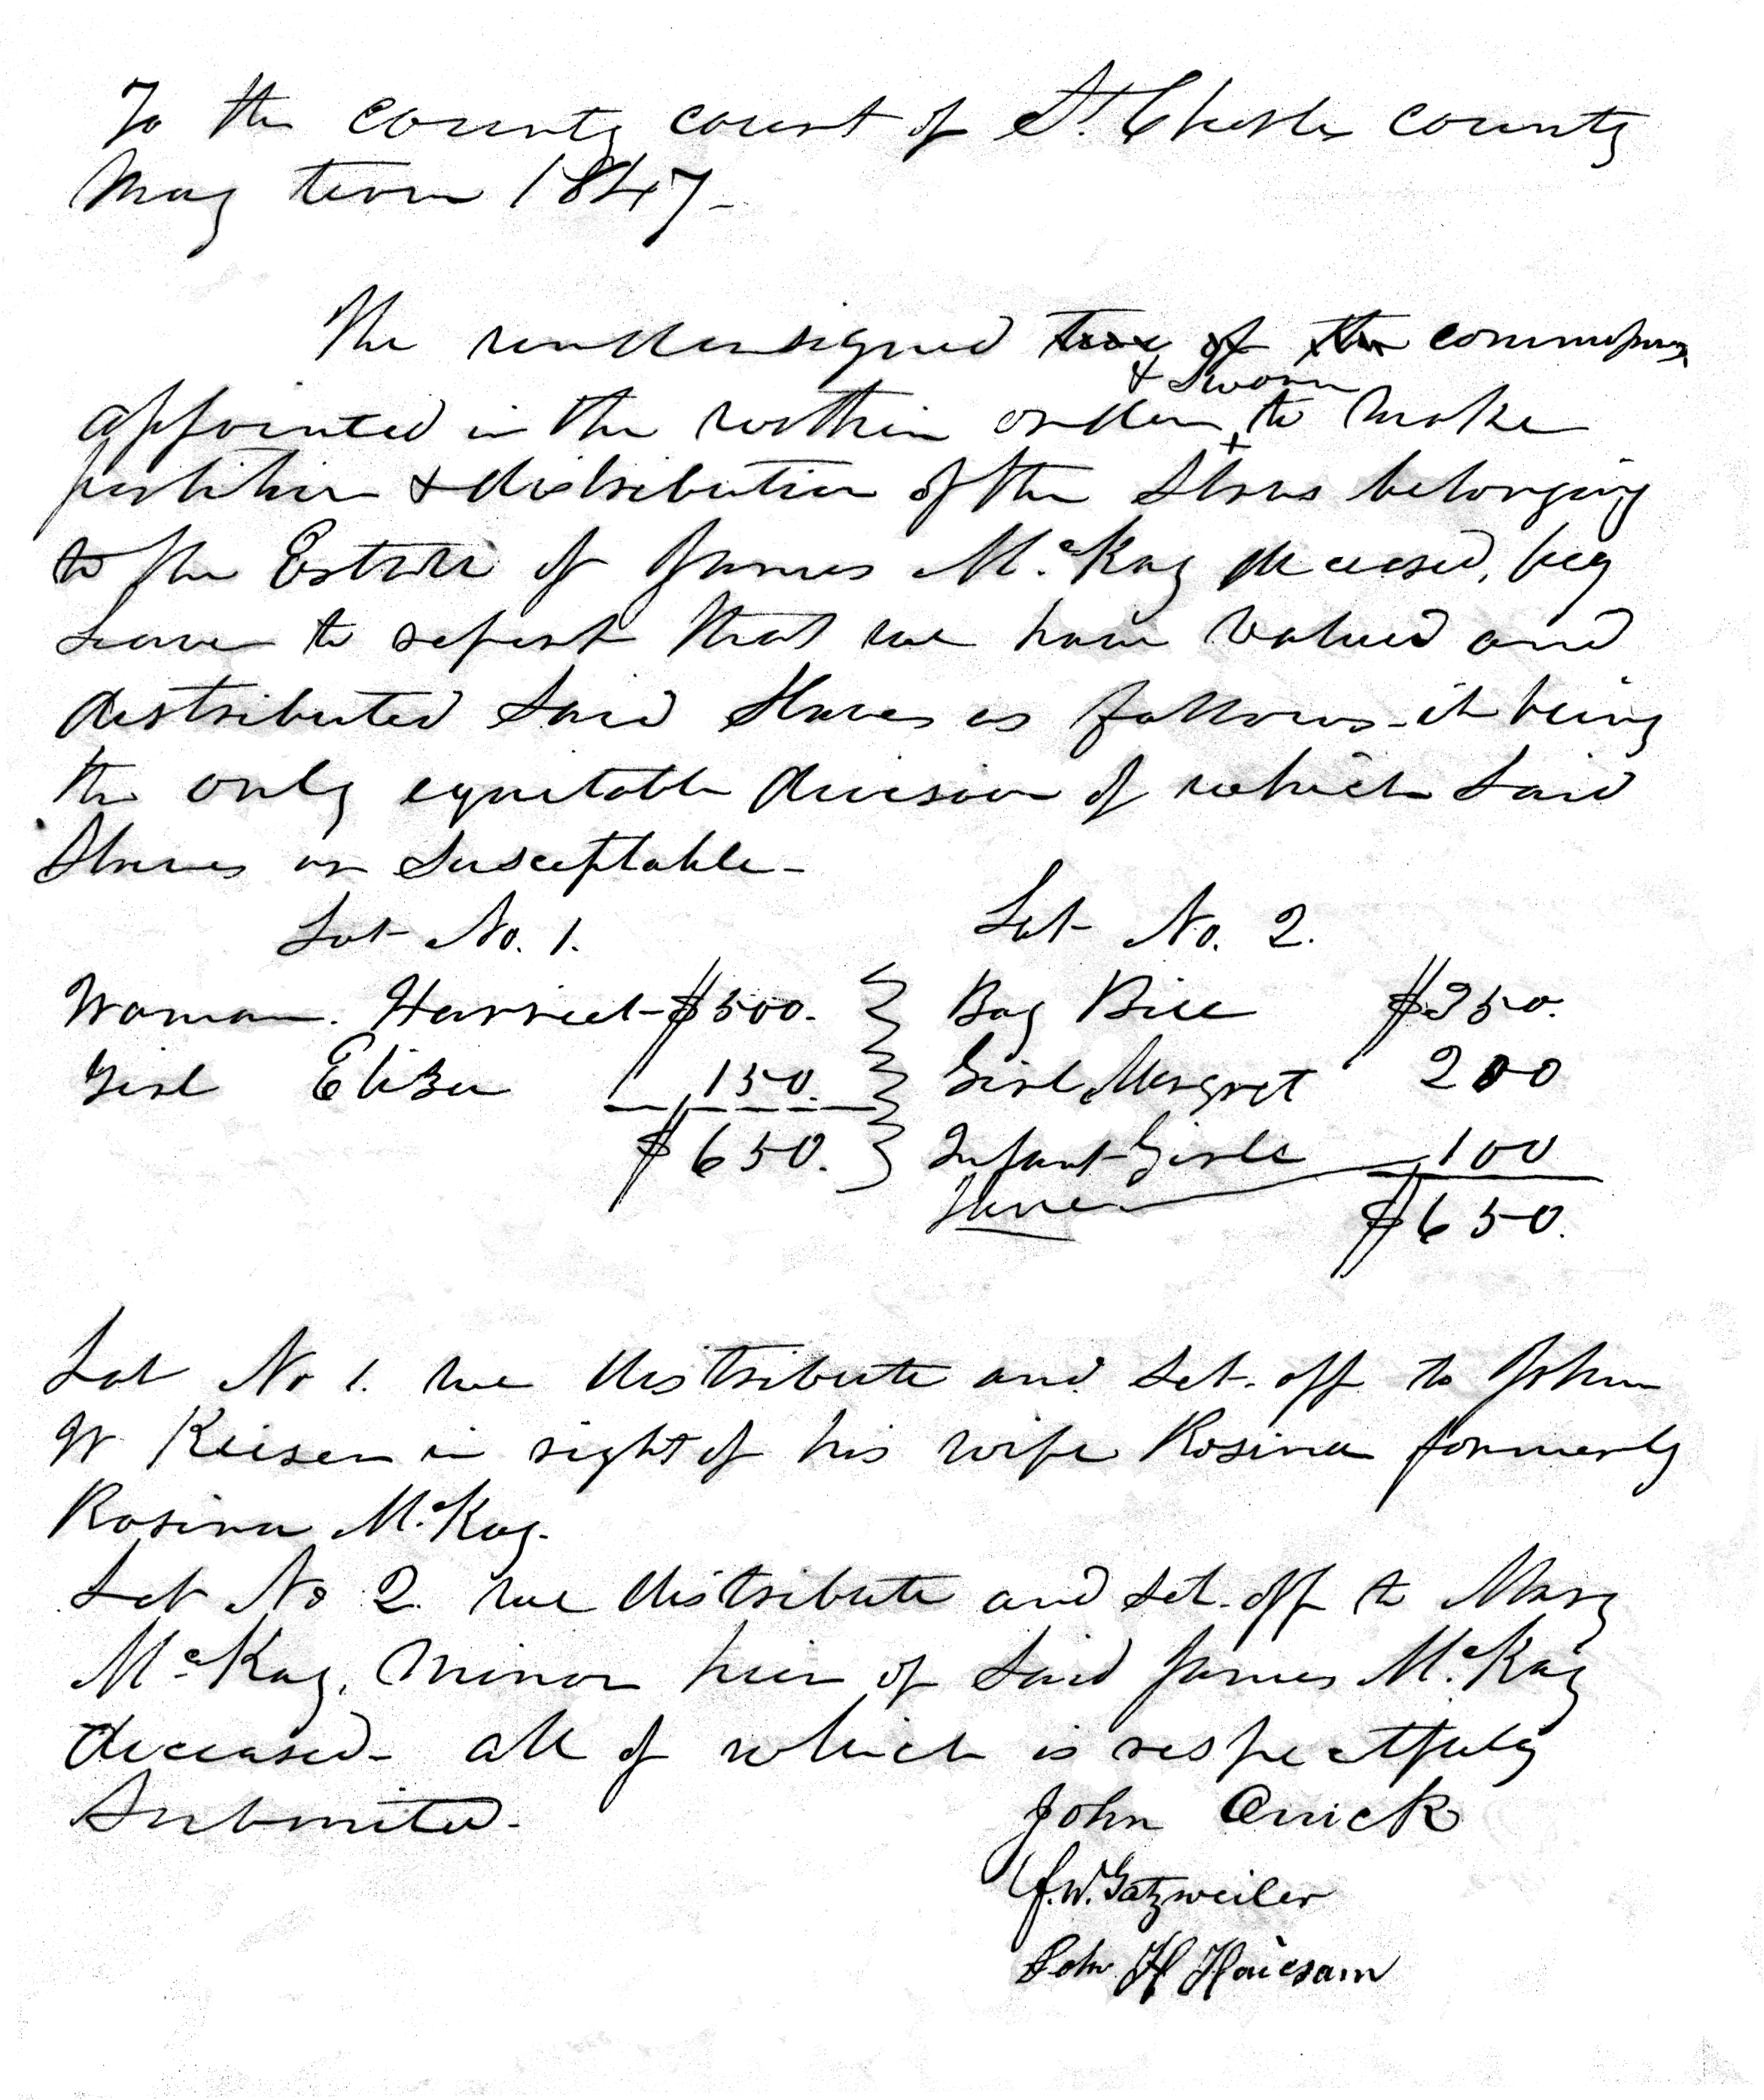 To the county court of St. Charles county
May term 1847-
The undersigned two of the commissioners
& Sworn
appointed in the within order to make
partition & distribution of the Slaves belonging
to the Estate of James McKay deceased, beg
Leave to report that we have valued and
distributed Said Slaves as follows - it being
the only equitable division of which Said
Slaves are Susceptable-
Lot No. 1. Lot No. 2.
Woman. Harriet $500. Boy Bill $350.
Girl Eliza 150. Girl Margret 200
$650. Infant Girl 100
Jane $650.
Lot No 1. we distribute and Set. off to John
W Keiser in right of his wife Rosina formerly
Rosina McKay.
Lot No 2. we distribute and Set. off to Mary
McKay, minor heir of Said James McKay
deceased- all of which is respectfully
Submitted.
John Orrick
J. W. Gatzweiler
John H